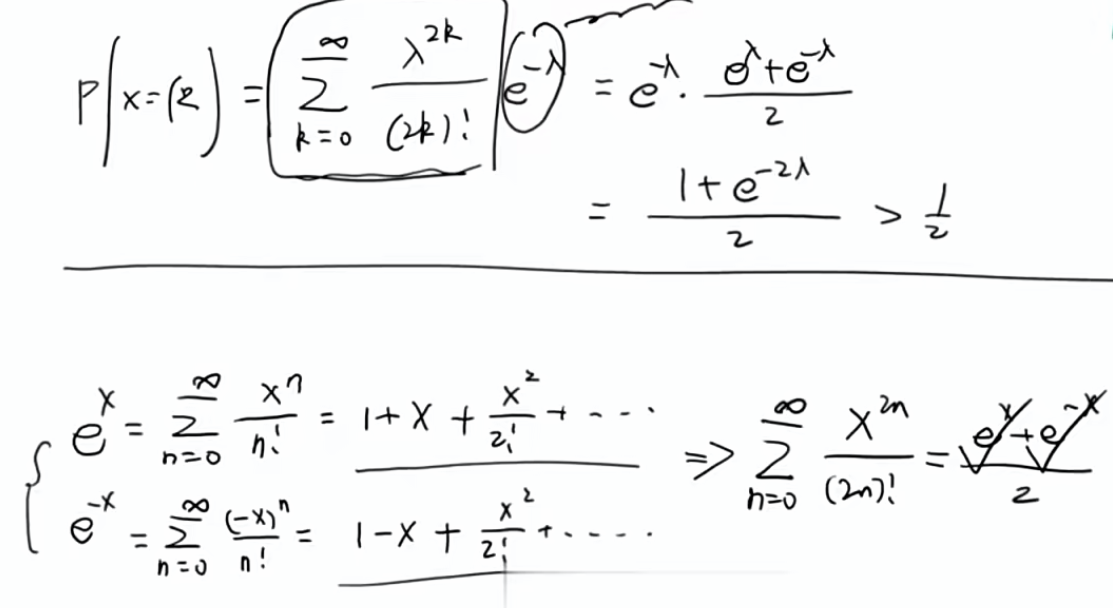 P(X=偶) = ∑_{k=0}^{∞} λ^{2k}/(2k)! e^{-λ} = e^{-λ} · (e^{λ}+e^{-λ})/2
= (1+e^{-2λ})/2 > 1/2
e^{x} = ∑_{n=0}^{∞} x^{n}/n! = 1+x+x^{2}/2!+····
e^{-x} = ∑_{n=0}^{∞} (-x)^{n}/n! = 1-x+x^{2}/2!+·····
⇒ ∑_{n=0}^{∞} x^{2n}/(2n)! = (e^{x}+e^{-x})/2